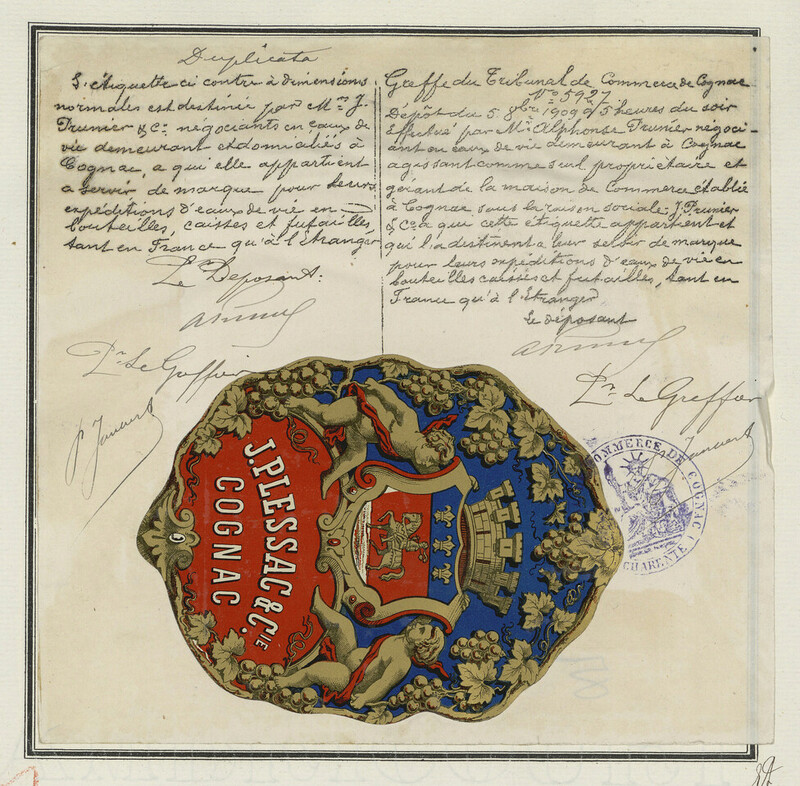 Duplicata
L'étiquette ci contre à dimensions
normales est destinée par Mrs J.
Prunier & Cie négociants en eaux de
vie demeurant et domiciliés à
Cognac, a qui elle appartient
a servir de marque pour leurs
expéditions d'eaux de vie en
bouteilles, caisses et futailles,
tant en France qu'à l'Etranger
Le Déposant:
Pr Le Greffier
P. Januart
Greffe du Tribunal de Commerce de Cognac
No 5927
Dépôt du 5 9bre 1909 à 5 heures du soir
Effectué par Mr Alphonse Prunier négoci-
ant en eaux de vie demeurant à Cognac
agissant comme seul propriétaire et
gérant de la maison de Commerce établie
à Cognac sous la raison sociale: J. Prunier
& Co a qui cette étiquette appartient et
qui l'a destinent a leur servir de marque
pour leurs expéditions d'eaux de vie en
bouteilles caisses et futailles, tant en
France qu'à l'Etranger
Le déposant
Pr Le Greffier
Januart
J. PLESSAC & CIE.
COGNAC
COMMERCE DE COGNAC
CHARENTE